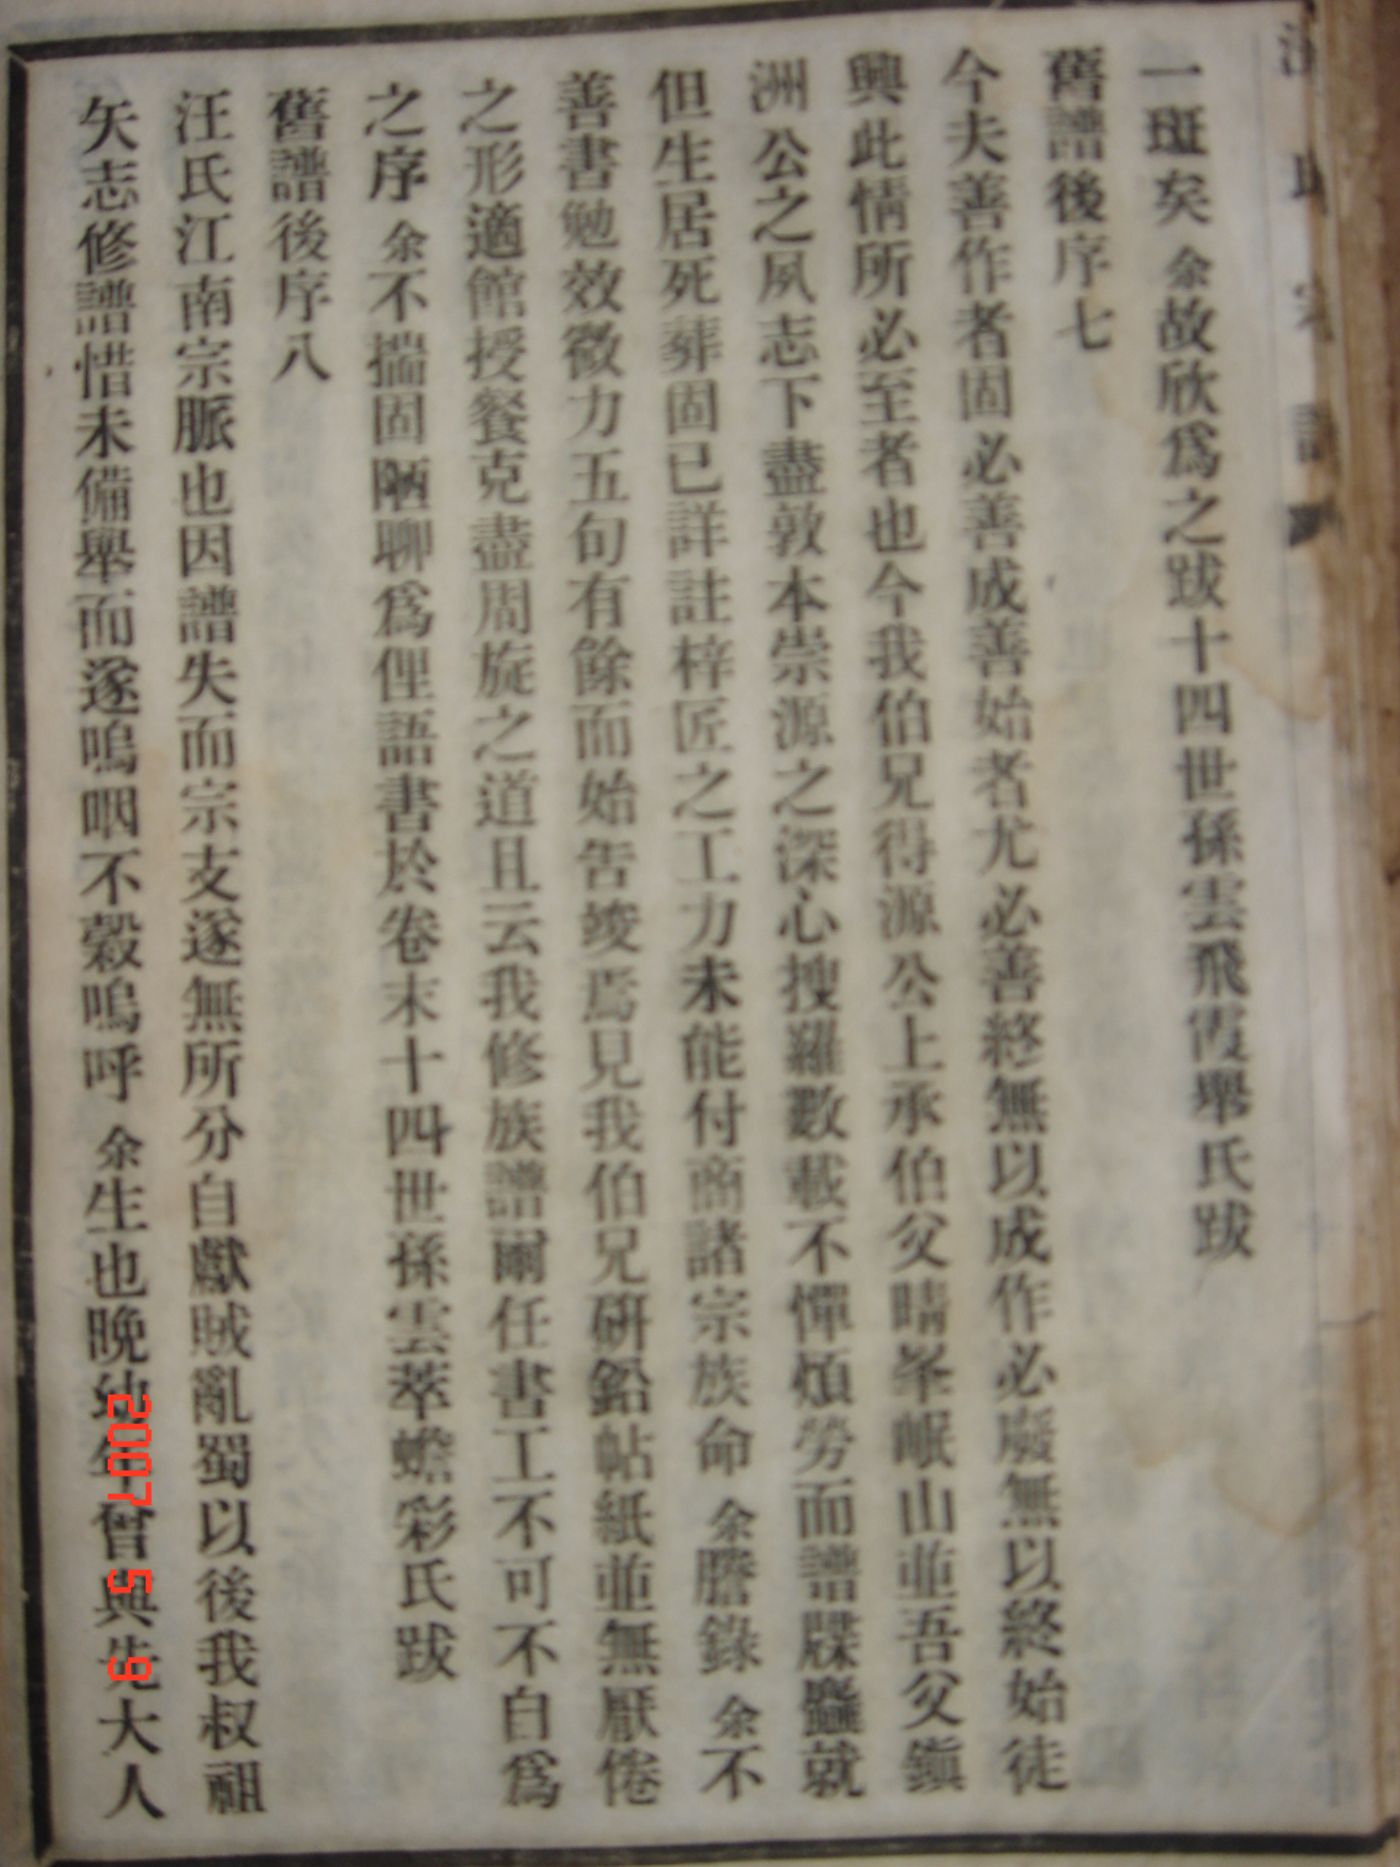 一斑矣余故欣為之跋十四世孫雲飛霞舉氏跋
舊譜後序七
今夫善作者固必善成善始者尤必善終無以成作必廢無以終始徒
興此情所必至者也今我伯兄得源公上承伯父晴峯岷山並吾父鎮
洲公之夙志下盡敦本崇源之深心搜羅數載不憚煩勞而譜牒蠶就
但生居死葬固已詳註梓匠之工力未能付商諸宗族命余謄錄余不
善書勉效微力五旬有餘而始告竣焉見我伯兄研鉛帖紙並無厭倦
之形適館授餐克盡周旋之道且云我修族譜爾任書工不可不自為
之序余不揣固陋聊為俚語書於卷末十四世孫雲萃蟾彩氏跋
舊譜後序八
汪氏江南宗脈也因譜失而宗支遂無所分自獻賊亂蜀以後我叔祖
矢志修譜惜未備舉而遂嗚咽不穀嗚呼余生也晚幼年曾與先大人
2007 5 9